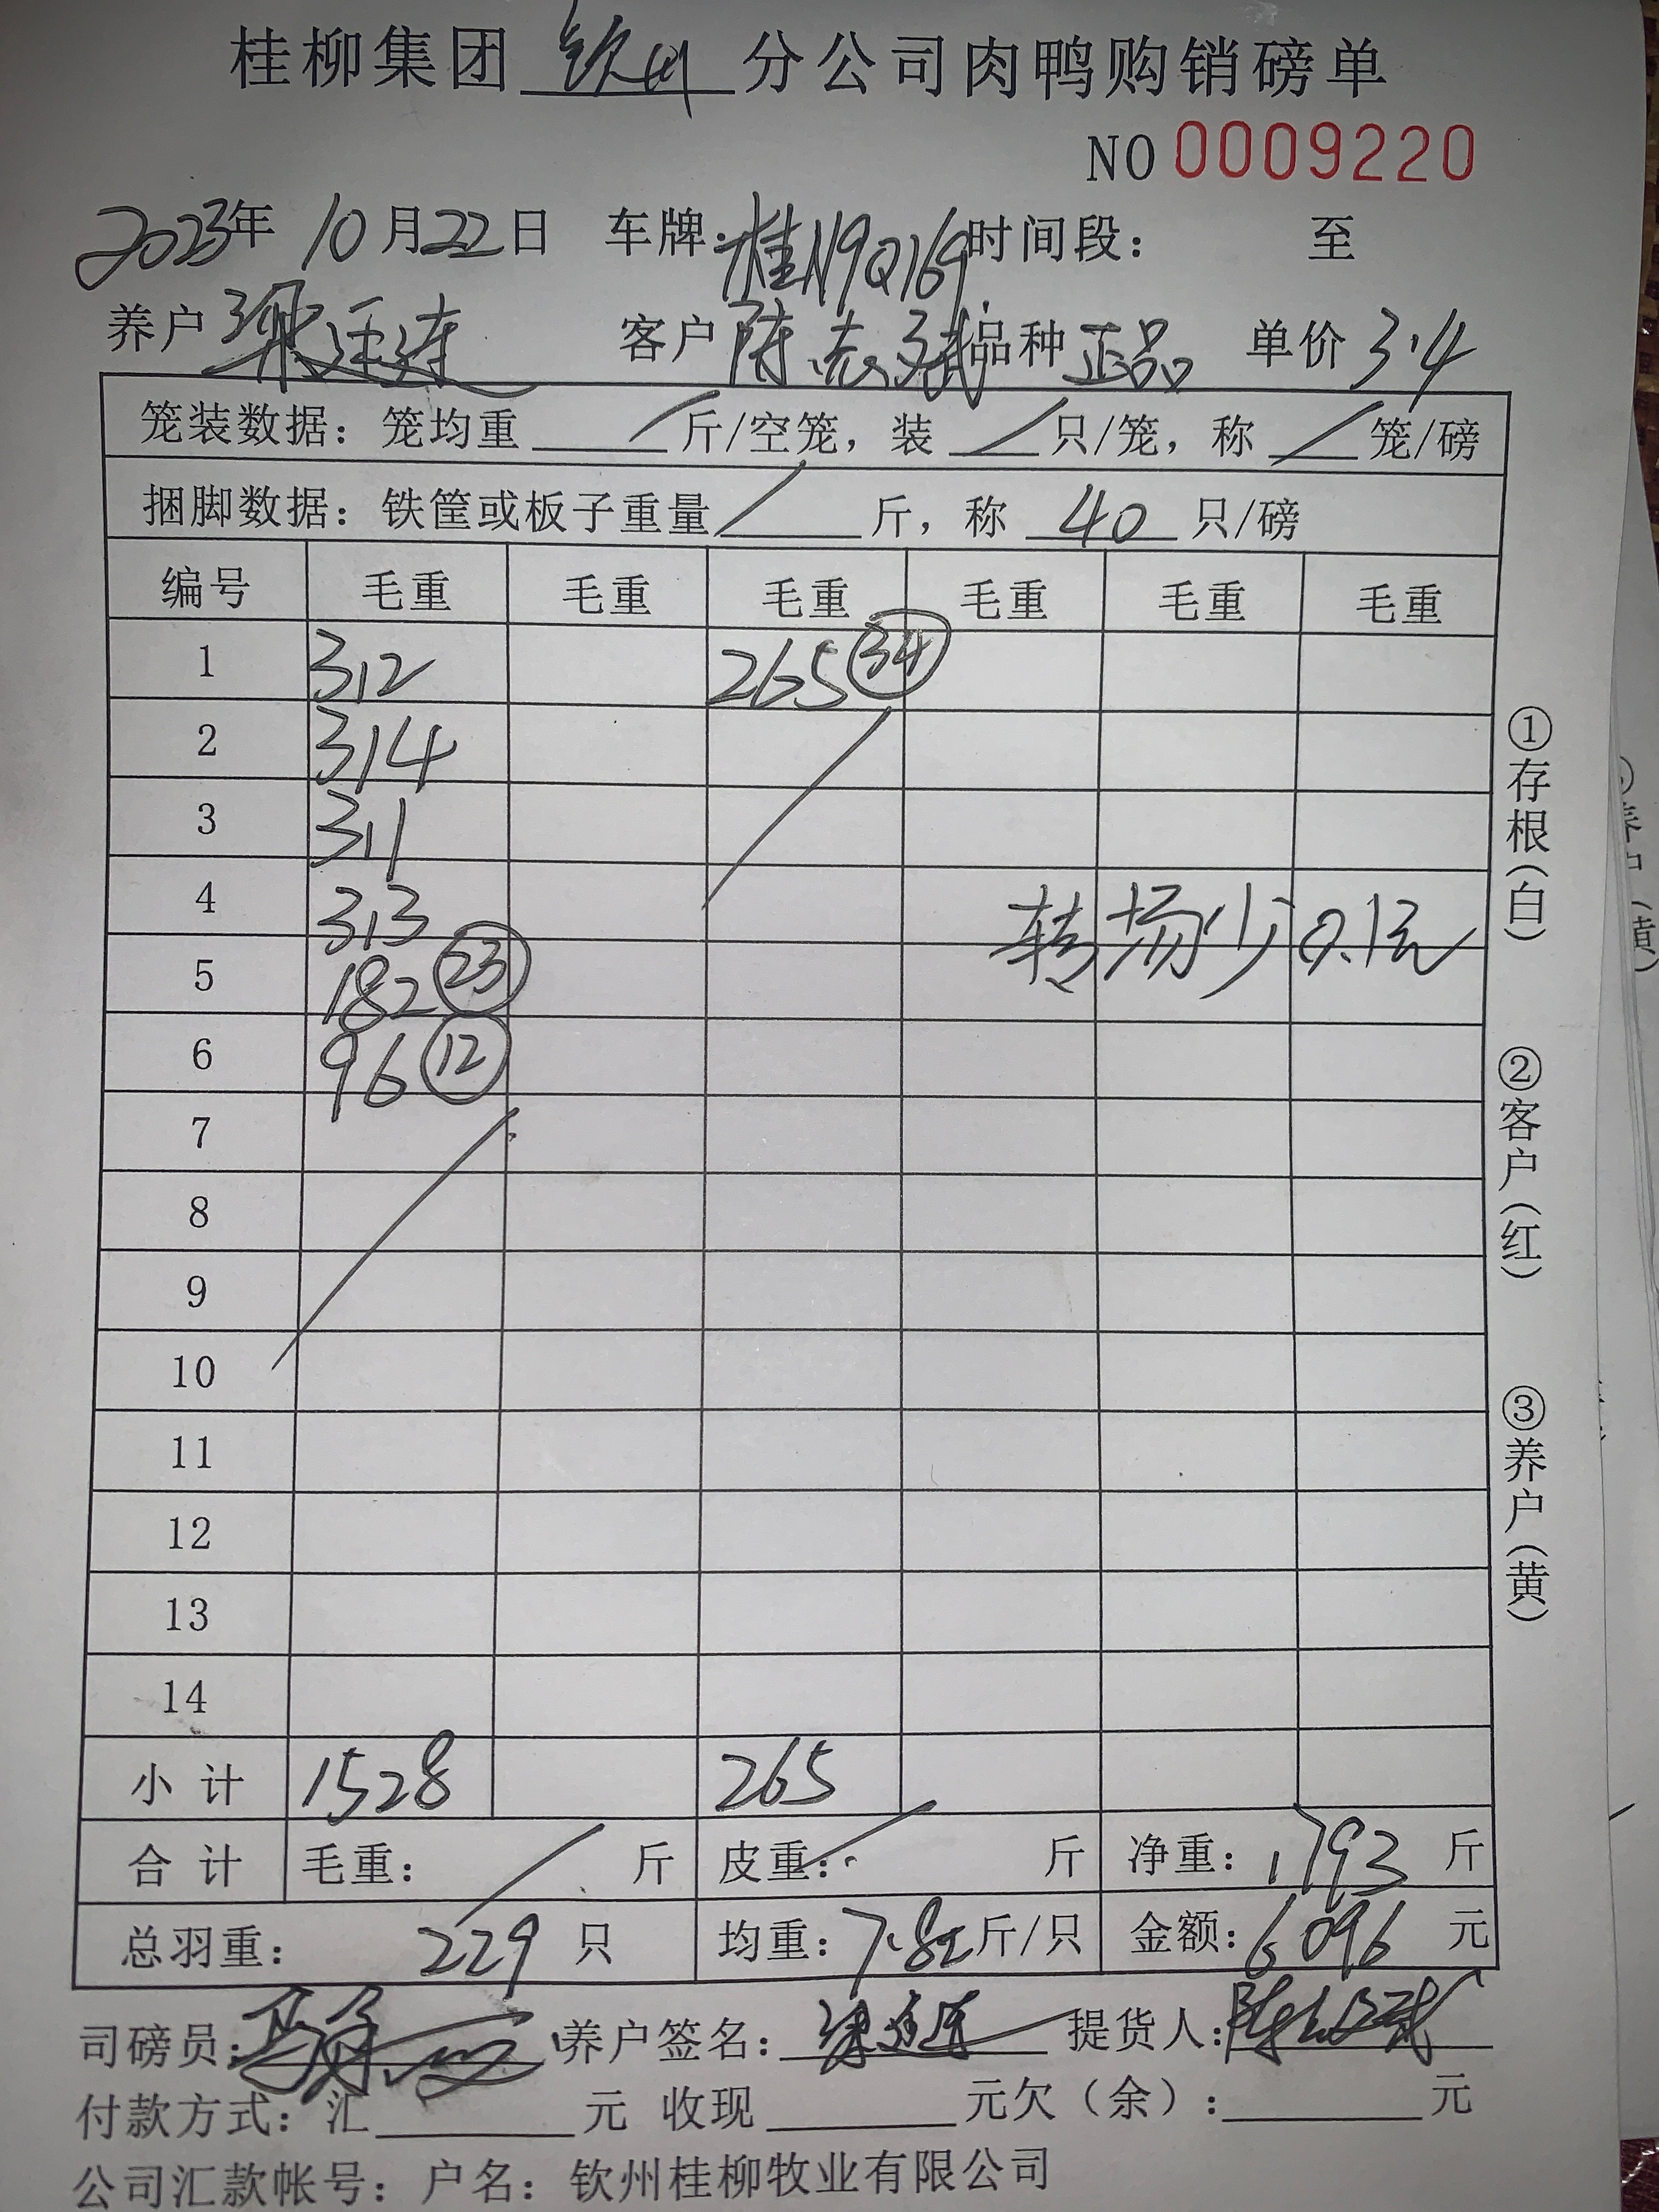 桂柳集团 钦州 分公司肉鸭购销磅单
NO 0009220
2023年 10月22日 车牌:桂N9Q169 时间段: 至
养户 梁廷连 客户 陈志武 品种 正品 单价 3.4
笼装数据: 笼均重 / 斤/空笼, 装 / 只/笼, 称 / 笼/磅
捆脚数据: 铁筐或板子重量 / 斤, 称 40 只/磅
编号 毛重 毛重 毛重 毛重 毛重 毛重
1 312 265 34
2 314
3 311
4 313
转场少0.1元
5 182 23
6 96 12
7
8
9
10
11
12
13
14
小计 1528 265
合计 毛重: / 斤 皮重: / 斤 净重: 1793 斤
总羽重: 229 只 均重: 7.82 斤/只 金额: 6096 元
司磅员: 养户签名: 梁廷连 提货人: 陈志武
付款方式: 汇 元 收现 元欠(余): 元
公司汇款帐号: 户名: 钦州桂柳牧业有限公司
①存根(白)
②客户(红)
③养户(黄)